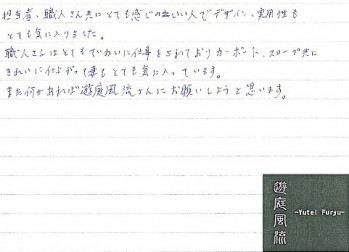 担当者、職人さん共にとても感じの良い人でデザイン、実用性も
とても気に入りました。
職人さんはとてもていねいに仕事をされておりカーポート、スロープ共に
きれいに仕上がって妻もとても気に入っています。
また何かあれば遊庭風流さんにお願いしようと思います。
遊庭風流
~Yutei Furyu~